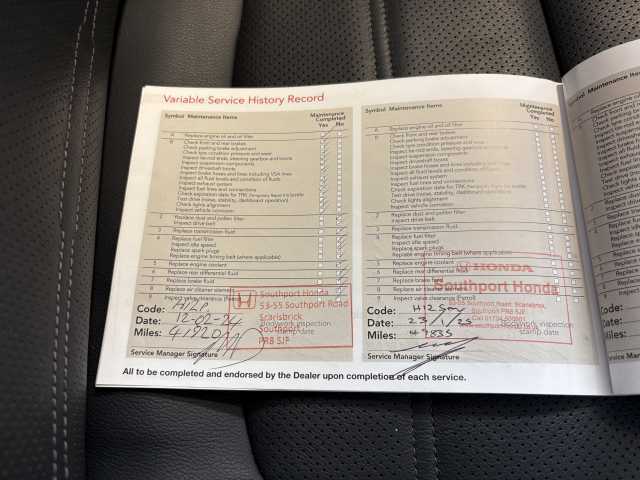 Variable Service History Record
Symbol Maintenance Items
Maintenance
Completed
Yes No
A Replace engine oil and oil filter
B Check front and rear brakes
Check parking brake adjustment
Check tyre condition pressure and wear
Inspect tie-rod ends, steering gearbox and boots
Inspect suspension components
Inspect driveshaft boots
Inspect brake hoses and lines including VSA lines
Inspect all fluid levels and condition of fluids
Inspect exhaust system
Inspect fuel lines and connections
Check expiration date for TRK (Temporary Repair Kit) bottle
Test drive (noise, stability, dashboard operation)
Check lights alignment
Inspect vehicle corrosion
2 Replace dust and pollen filter
Inspect drive belt
3 Replace transmission fluid
4 Replace fuel filter
Inspect idle speed
Replace spark plugs
Replace engine timing belt (where applicable)
5 Replace engine coolant
6 Replace rear differential fluid
7 Replace brake fluid
8 Replace air cleaner element
9 Inspect valve clearance (Petrol)
Southport Honda
53-55 Southport Road
Scarisbrick
Southport
PR8 5JF
Code:
Date:
Miles:
Bodywork inspection
stamp date
Service Manager Signature
Symbol Maintenance Items
Maintenance
Completed
Yes No
A Replace engine oil and oil filter
B Check front and rear brakes
Check parking brake adjustment
Check tyre condition pressure and wear
Inspect tie-rod ends, steering gearbox and boots
Inspect suspension components
Inspect driveshaft boots
Inspect brake hoses and lines including VSA lines
Inspect all fluid levels and condition of fluids
Inspect exhaust system
Inspect fuel lines and connections
Check expiration date for TRK (Temporary Repair Kit) bottle
Test drive (noise, stability, dashboard operation)
Check lights alignment
Inspect vehicle corrosion
2 Replace dust and pollen filter
Inspect drive belt
3 Replace transmission fluid
4 Replace fuel filter
Inspect idle speed
Replace spark plugs
Replace engine timing belt (where applicable)
5 Replace engine coolant
6 Replace rear differential fluid
7 Replace brake fluid
8 Replace air cleaner element
9 Inspect valve clearance (Petrol)
HONDA
Southport Honda
53-55 Southport Road, Scarisbrick,
Southport PR8 5JF
Code:
Date: 23/1/25
Miles: 49835
Bodywork inspection
stamp date
Service Manager Signature
All to be completed and endorsed by the Dealer upon completion of each service.
Code:
Date:
Miles: